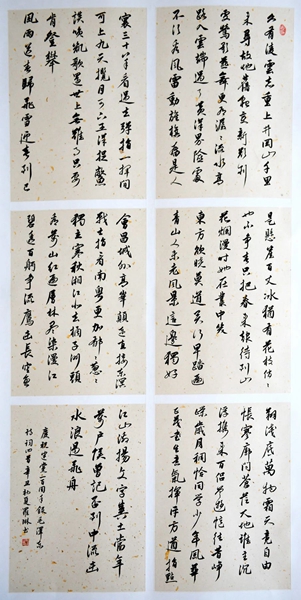 久有凌云志重上井冈山千里
来寻故地旧貌变新颜到
处莺歌燕舞更有潺潺流水高
路入云端过了黄洋界险处
不须看风雷动旌旗奋是人
寰三十八年过去弹指一挥间
可上九天揽月可下五洋捉鳖
谈笑凯歌还世上无难事只要
肯登攀
风雨送春归飞雪迎春到已
是悬崖百丈冰犹有花枝俏俏
也不争春只把春来报待到山
花烂漫时她在丛中笑
东方欲晓莫道君行早踏遍
青山人未老风景这边独好
会昌城外高峰颠连直接东溟
战士指看南粤更加郁郁葱葱
独立寒秋湘江北去橘子洲头
看万山红遍层林尽染漫江
碧透百舸争流鹰击长空鱼
翔浅底万类霜天竞自由
怅寥廓问苍茫大地谁主沉
浮携来百侣曾游忆往昔峥
嵘岁月稠恰同学少年风华
正茂书生意气挥斥方遒指点
江山激扬文字粪土当年
万户侯曾记否到中流击
水浪遏飞舟
庆祝建党一百周年敬录毛泽东
诗词四首辛丑初夏琳书